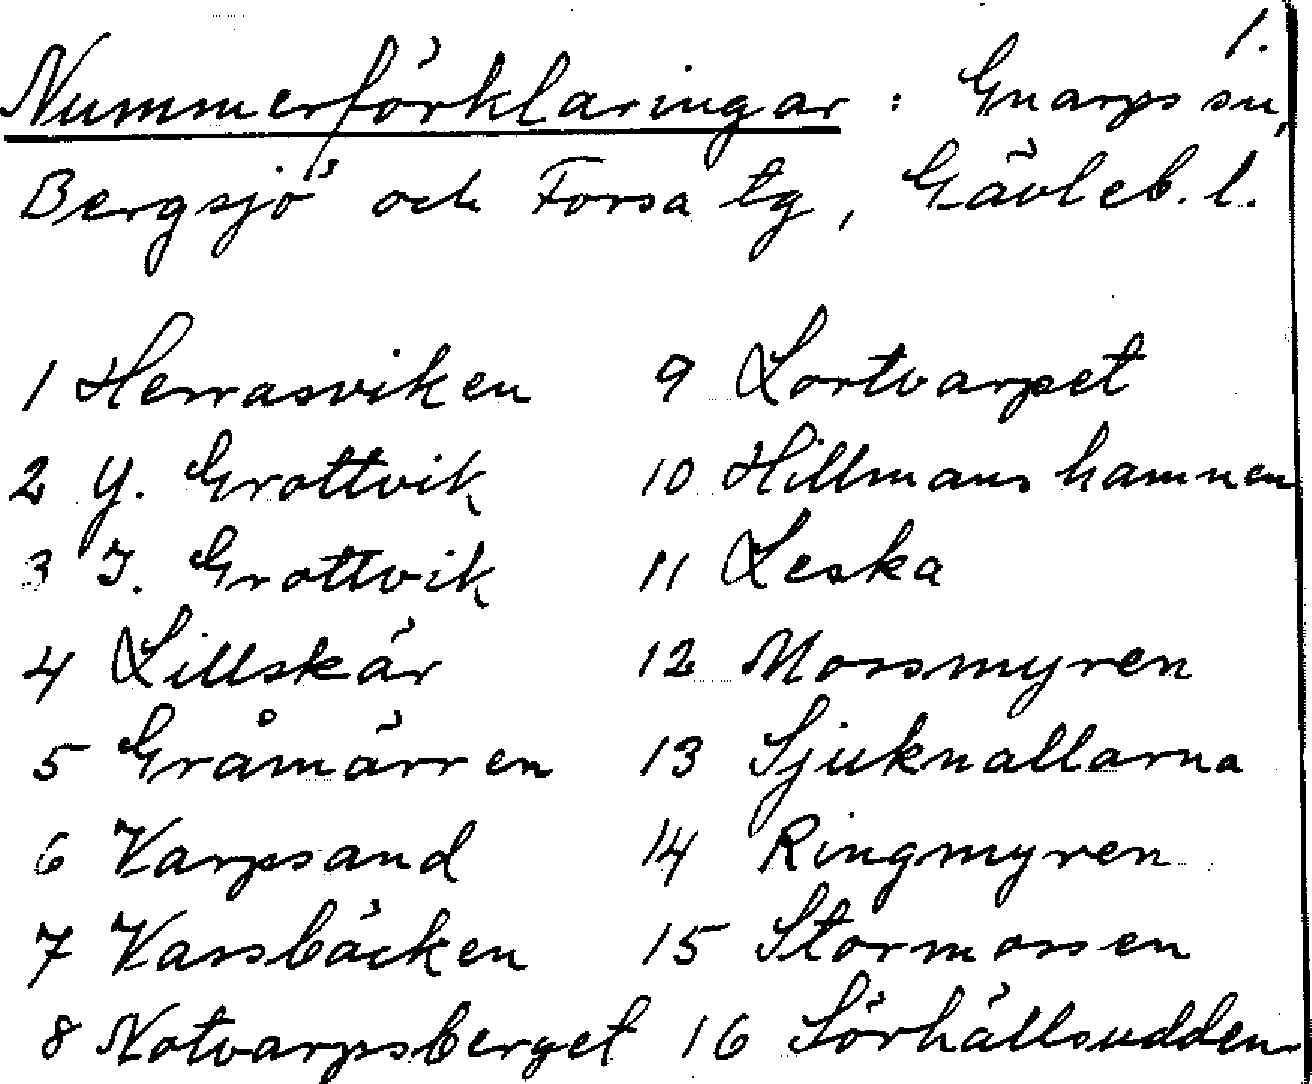 1.
Nummerförklaringar : Gnarps sn,
Bergsjö och Forsa tg, Gävleb. l.
1 Herrasviken
2 Y. Grottvik
3 I. Grottvik
4 Lillskär
5 Gråmärren
6 Varpsand
7 Vassbäcken
8 Notvarpsberget
9 Lortvarpet
10 Hillmanshamnen
11 Leska
12 Mossmyren
13 Sjuknallarna
14 Ringmyren
15 Stormossen
16 Sörhällsudden